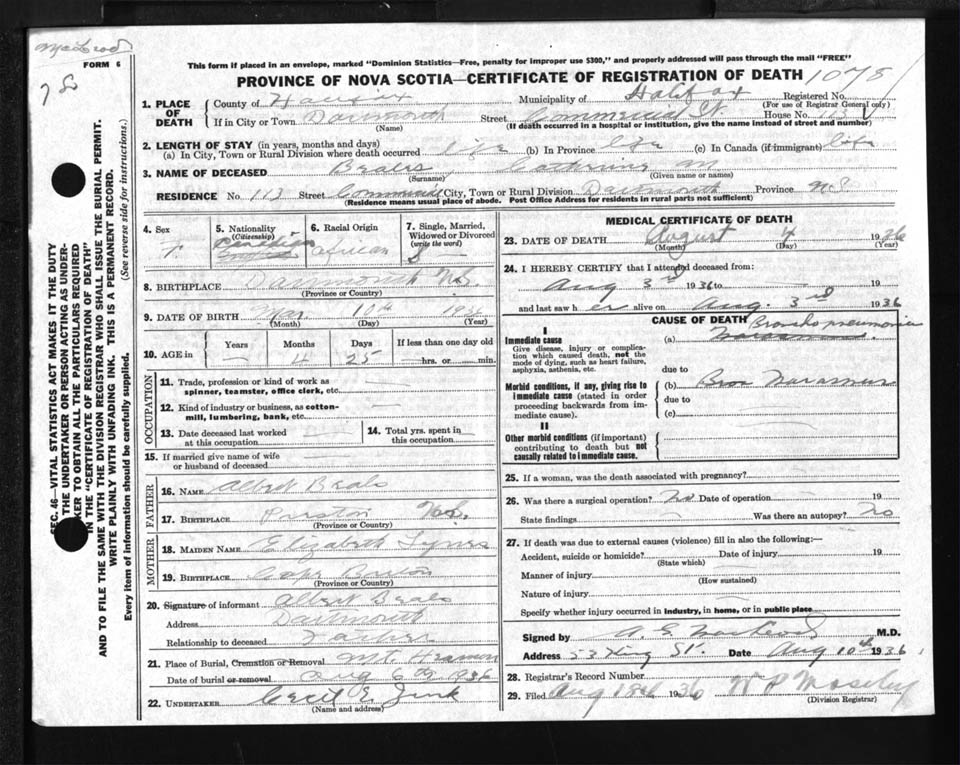 MacLeod
FORM 6
78
This form if placed in an envelope, marked "Dominion Statistics—Free, penalty for improper use $300," and properly addressed will pass through the mail "FREE"
PROVINCE OF NOVA SCOTIA—CERTIFICATE OF REGISTRATION OF DEATH 1078
1. PLACE OF DEATH County of Halifax Municipality of Halifax Registered No.
(For use of Registrar General only)
If in City or Town Dartmouth Street Commercial St. House No. 113
(Name) (If death occurred in a hospital or institution, give the name instead of street and number)
2. LENGTH OF STAY (in years, months and days)
(a) In City, Town or Rural Division where death occurred life (b) In Province life (c) In Canada (if immigrant) life
3. NAME OF DECEASED Beals Catherine M
(Surname) (Given name or names)
RESIDENCE No. 113 Street Commercial City, Town or Rural Division Dartmouth Province N.S.
(Residence means usual place of abode. Post Office Address for residents in rural parts not sufficient)
4. Sex F.
5. Nationality (Citizenship) Canadian
6. Racial Origin African
7. Single, Married, Widowed or Divorced (write the word) S
8. BIRTHPLACE Dartmouth N.S.
(Province or Country)
9. DATE OF BIRTH Mar. 10th 193
(Month) (Day) (Year)
10. AGE in Years Months Days If less than one day old
— 4 25 hrs. or min.
OCCUPATION
11. Trade, profession or kind of work as spinner, teamster, office clerk, etc.
12. Kind of industry or business, as cotton-mill, lumbering, bank, etc.
13. Date deceased last worked at this occupation
14. Total yrs. spent in this occupation
15. If married give name of wife or husband of deceased
FATHER
16. NAME Albert Beals
17. BIRTHPLACE Preston N.S.
(Province or Country)
MOTHER
18. MAIDEN NAME Elizabeth Tynes
19. BIRTHPLACE Cape Breton
(Province or Country)
20. Signature of informant Albert Beals
Address Dartmouth
Relationship to deceased Father
21. Place of Burial, Cremation or Removal Mt. Hermon
Date of burial or removal Aug 6th 1936
22. UNDERTAKER Cecil E. Zink
(Name and address)
MEDICAL CERTIFICATE OF DEATH
23. DATE OF DEATH August 4 1936
(Month) (Day) (Year)
24. I HEREBY CERTIFY that I attended deceased from:
Aug 3rd 1936 to 19
and last saw h er alive on Aug. 3rd 1936
CAUSE OF DEATH
I
Immediate cause
Give disease, injury or complication which caused death, not the mode of dying, such as heart failure, asphyxia, asthenia, etc.
(a) Broncho pneumonia
Marasmus
due to
Morbid conditions, if any, giving rise to immediate cause (stated in order proceeding backwards from immediate cause).
(b) Bron Marasmus
due to
(c)
II
Other morbid conditions (if important) contributing to death but not causally related to immediate cause.
25. If a woman, was the death associated with pregnancy?
26. Was there a surgical operation? No Date of operation 19
State findings Was there an autopsy? No
27. If death was due to external causes (violence) fill in also the following:—
Accident, suicide or homicide? Date of injury 19
(State which)
Manner of injury
(How sustained)
Nature of injury
Specify whether injury occurred in industry, in home, or in public place
Signed by A. G. MacLeod M.D.
Address 53 King St. Date Aug 10th 1936
28. Registrar's Record Number
29. Filed Aug 18th 1936 W P Moseley
(Division Registrar)
SEC. 46—VITAL STATISTICS ACT MAKES IT THE DUTY
THE UNDERTAKER OR PERSON ACTING AS UNDER-
KER TO OBTAIN ALL THE PARTICULARS REQUIRED
IN THE "CERTIFICATE OF REGISTRATION OF DEATH"
AND TO FILE THE SAME WITH THE DIVISION REGISTRAR WHO SHALL ISSUE THE BURIAL PERMIT.
WRITE PLAINLY WITH UNFADING INK. THIS IS A PERMANENT RECORD.
Every item of information should be carefully supplied. (See reverse side for instructions.)